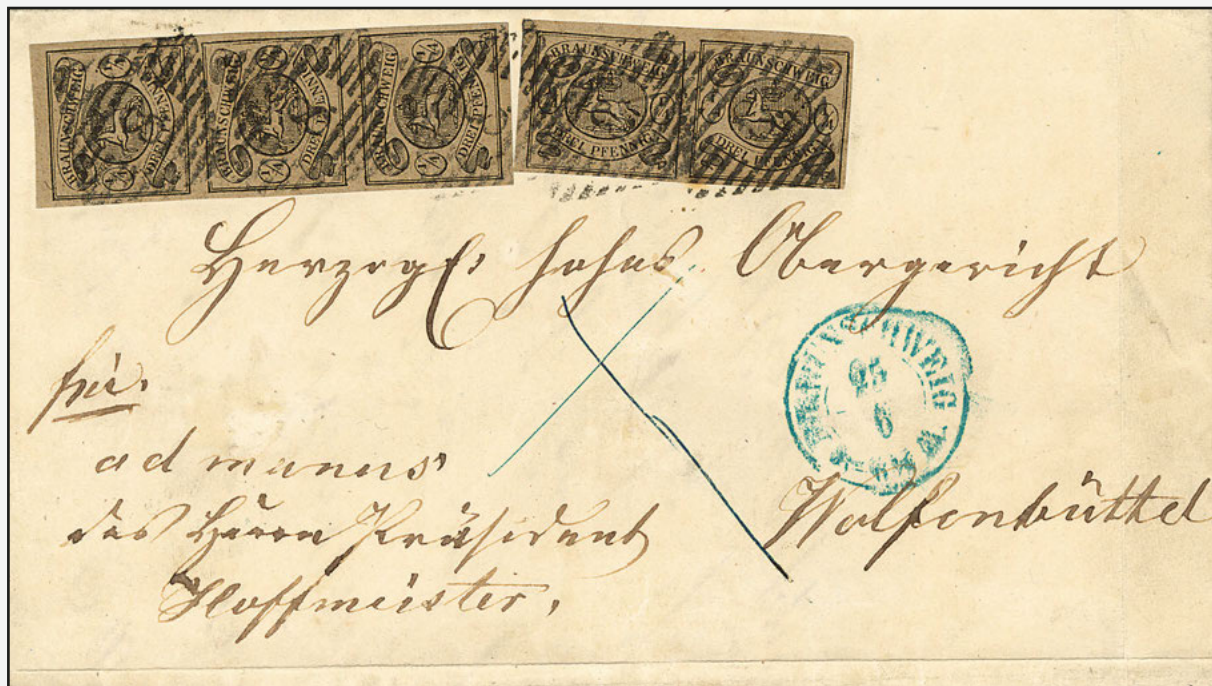 BRAUNSCHWEIG DREI PFENNIG ¼ ¼
BRAUNSCHWEIG DREI PFENNIG ¼ ¼
BRAUNSCHWEIG DREI PFENNIG ¼ ¼
BRAUNSCHWEIG DREI PFENNIG
BRAUNSCHWEIG DREI PFENNIG
Herzogl: hohes Obergericht
BRAUNSCHWEIG
25
6
frei.
ad manus
des Herrn Präsident
Hoffmeister.
Wolfenbüttel